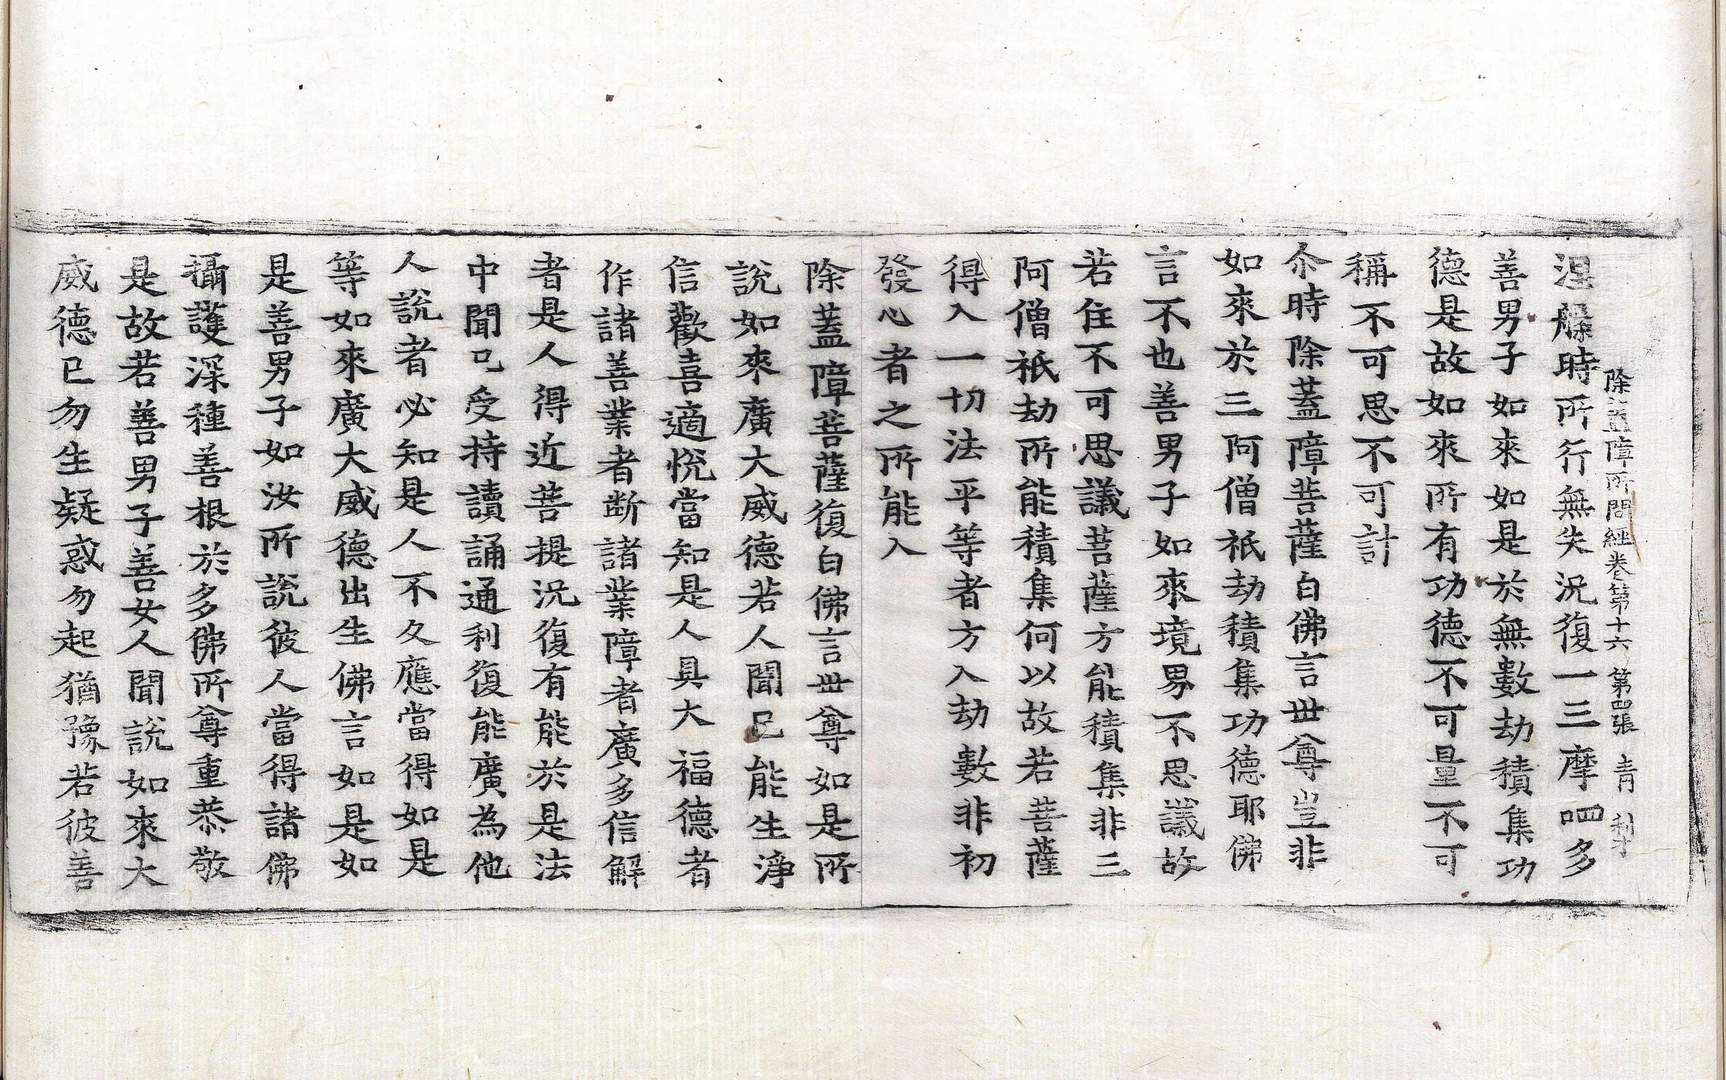 除蓋障所問經卷第十六 第四張 青
涅槃時所行無失況復一三摩呬多
善男子如來如是於無數劫積集功
德是故如來所有功德不可量不可
稱不可思不可計
尒時除蓋障菩薩白佛言世尊豈非
如來於三阿僧祇劫積集功德耶佛
言不也善男子如來境界不思議故
若住不可思議菩薩方能積集非三
阿僧祇劫所能積集何以故若菩薩
得入一切法平等者方入劫數非初
發心者之所能入
除蓋障菩薩復白佛言世尊如是所
說如來廣大威德若人聞已能生淨
信歡喜適悅當知是人具大福德者
作諸善業者斷諸業障者廣多信解
者是人得近菩提況復有能於是法
中聞已受持讀誦通利復能廣為他
人說者必知是人不久應當得如是
等如來廣大威德出生佛言如是如
是善男子如汝所說彼人當得諸佛
攝護深種善根於多佛所尊重恭敬
是故若善男子善女人聞說如來大
威德已勿生疑惑勿起猶豫若彼善